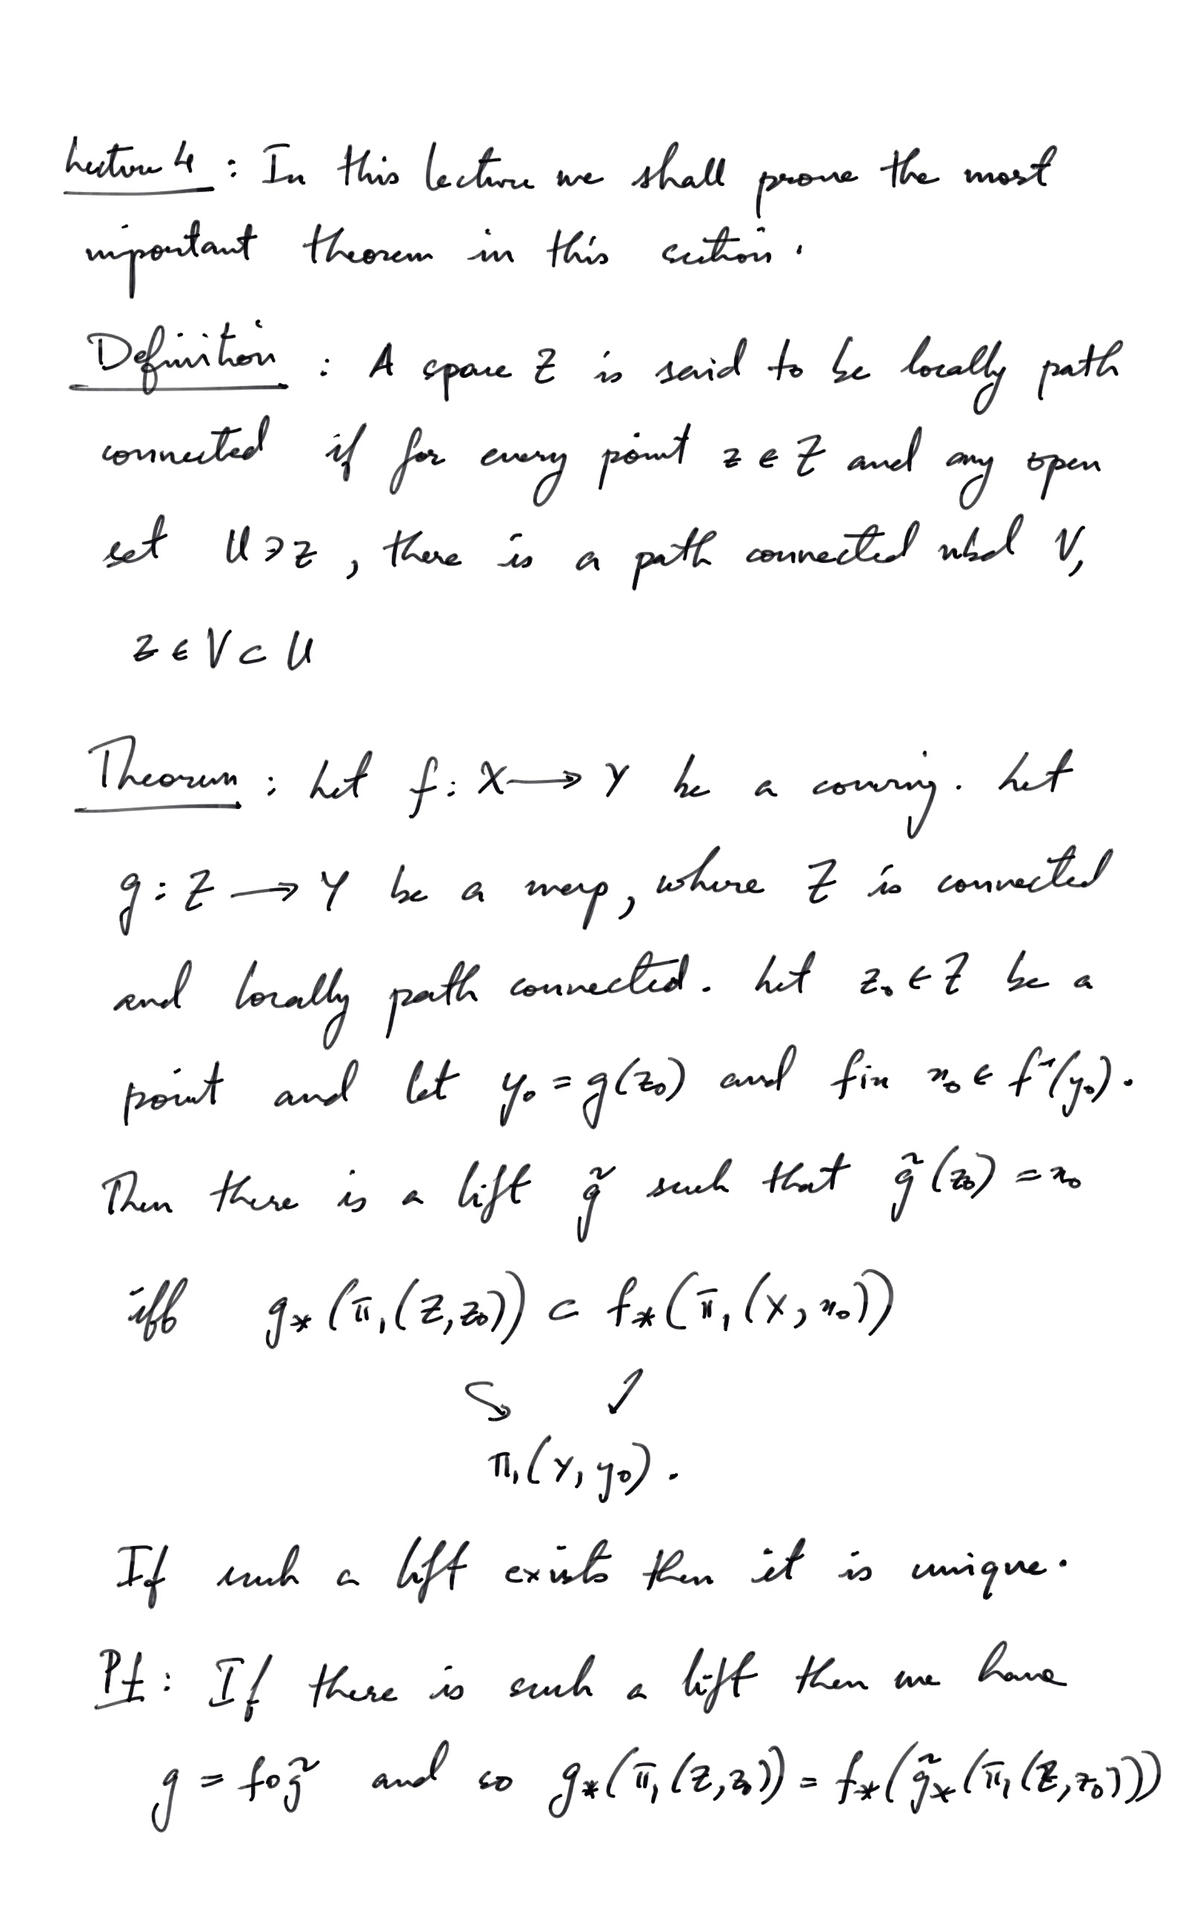 Lecture 4 : In this lecture we shall prove the most
important theorem in this section.
Definition : A space Z is said to be locally path
connected if for every point z ∈ Z and any open
set U ∋ z , there is a path connected nbd V,
z ∈ V ⊂ U
Theorem : Let f : X ⟶ Y be a covering. Let
g : Z ⟶ Y be a map, where Z is connected
and locally path connected. Let z₀ ∈ Z be a
point and let y₀ = g(z₀) and fix x₀ ∈ f⁻¹(y₀).
Then there is a lift g̃ such that g̃(z₀) = x₀
iff g_*(π₁(Z, z₀)) ⊂ f_*(π₁(X, x₀))
↘ ↙
π₁(Y, y₀).
If such a lift exists then it is unique.
Pf : If there is such a lift then we have
g = f∘g̃ and so g_*(π₁(Z, z₀)) = f_*(g̃_*(π₁(Z, z₀)))